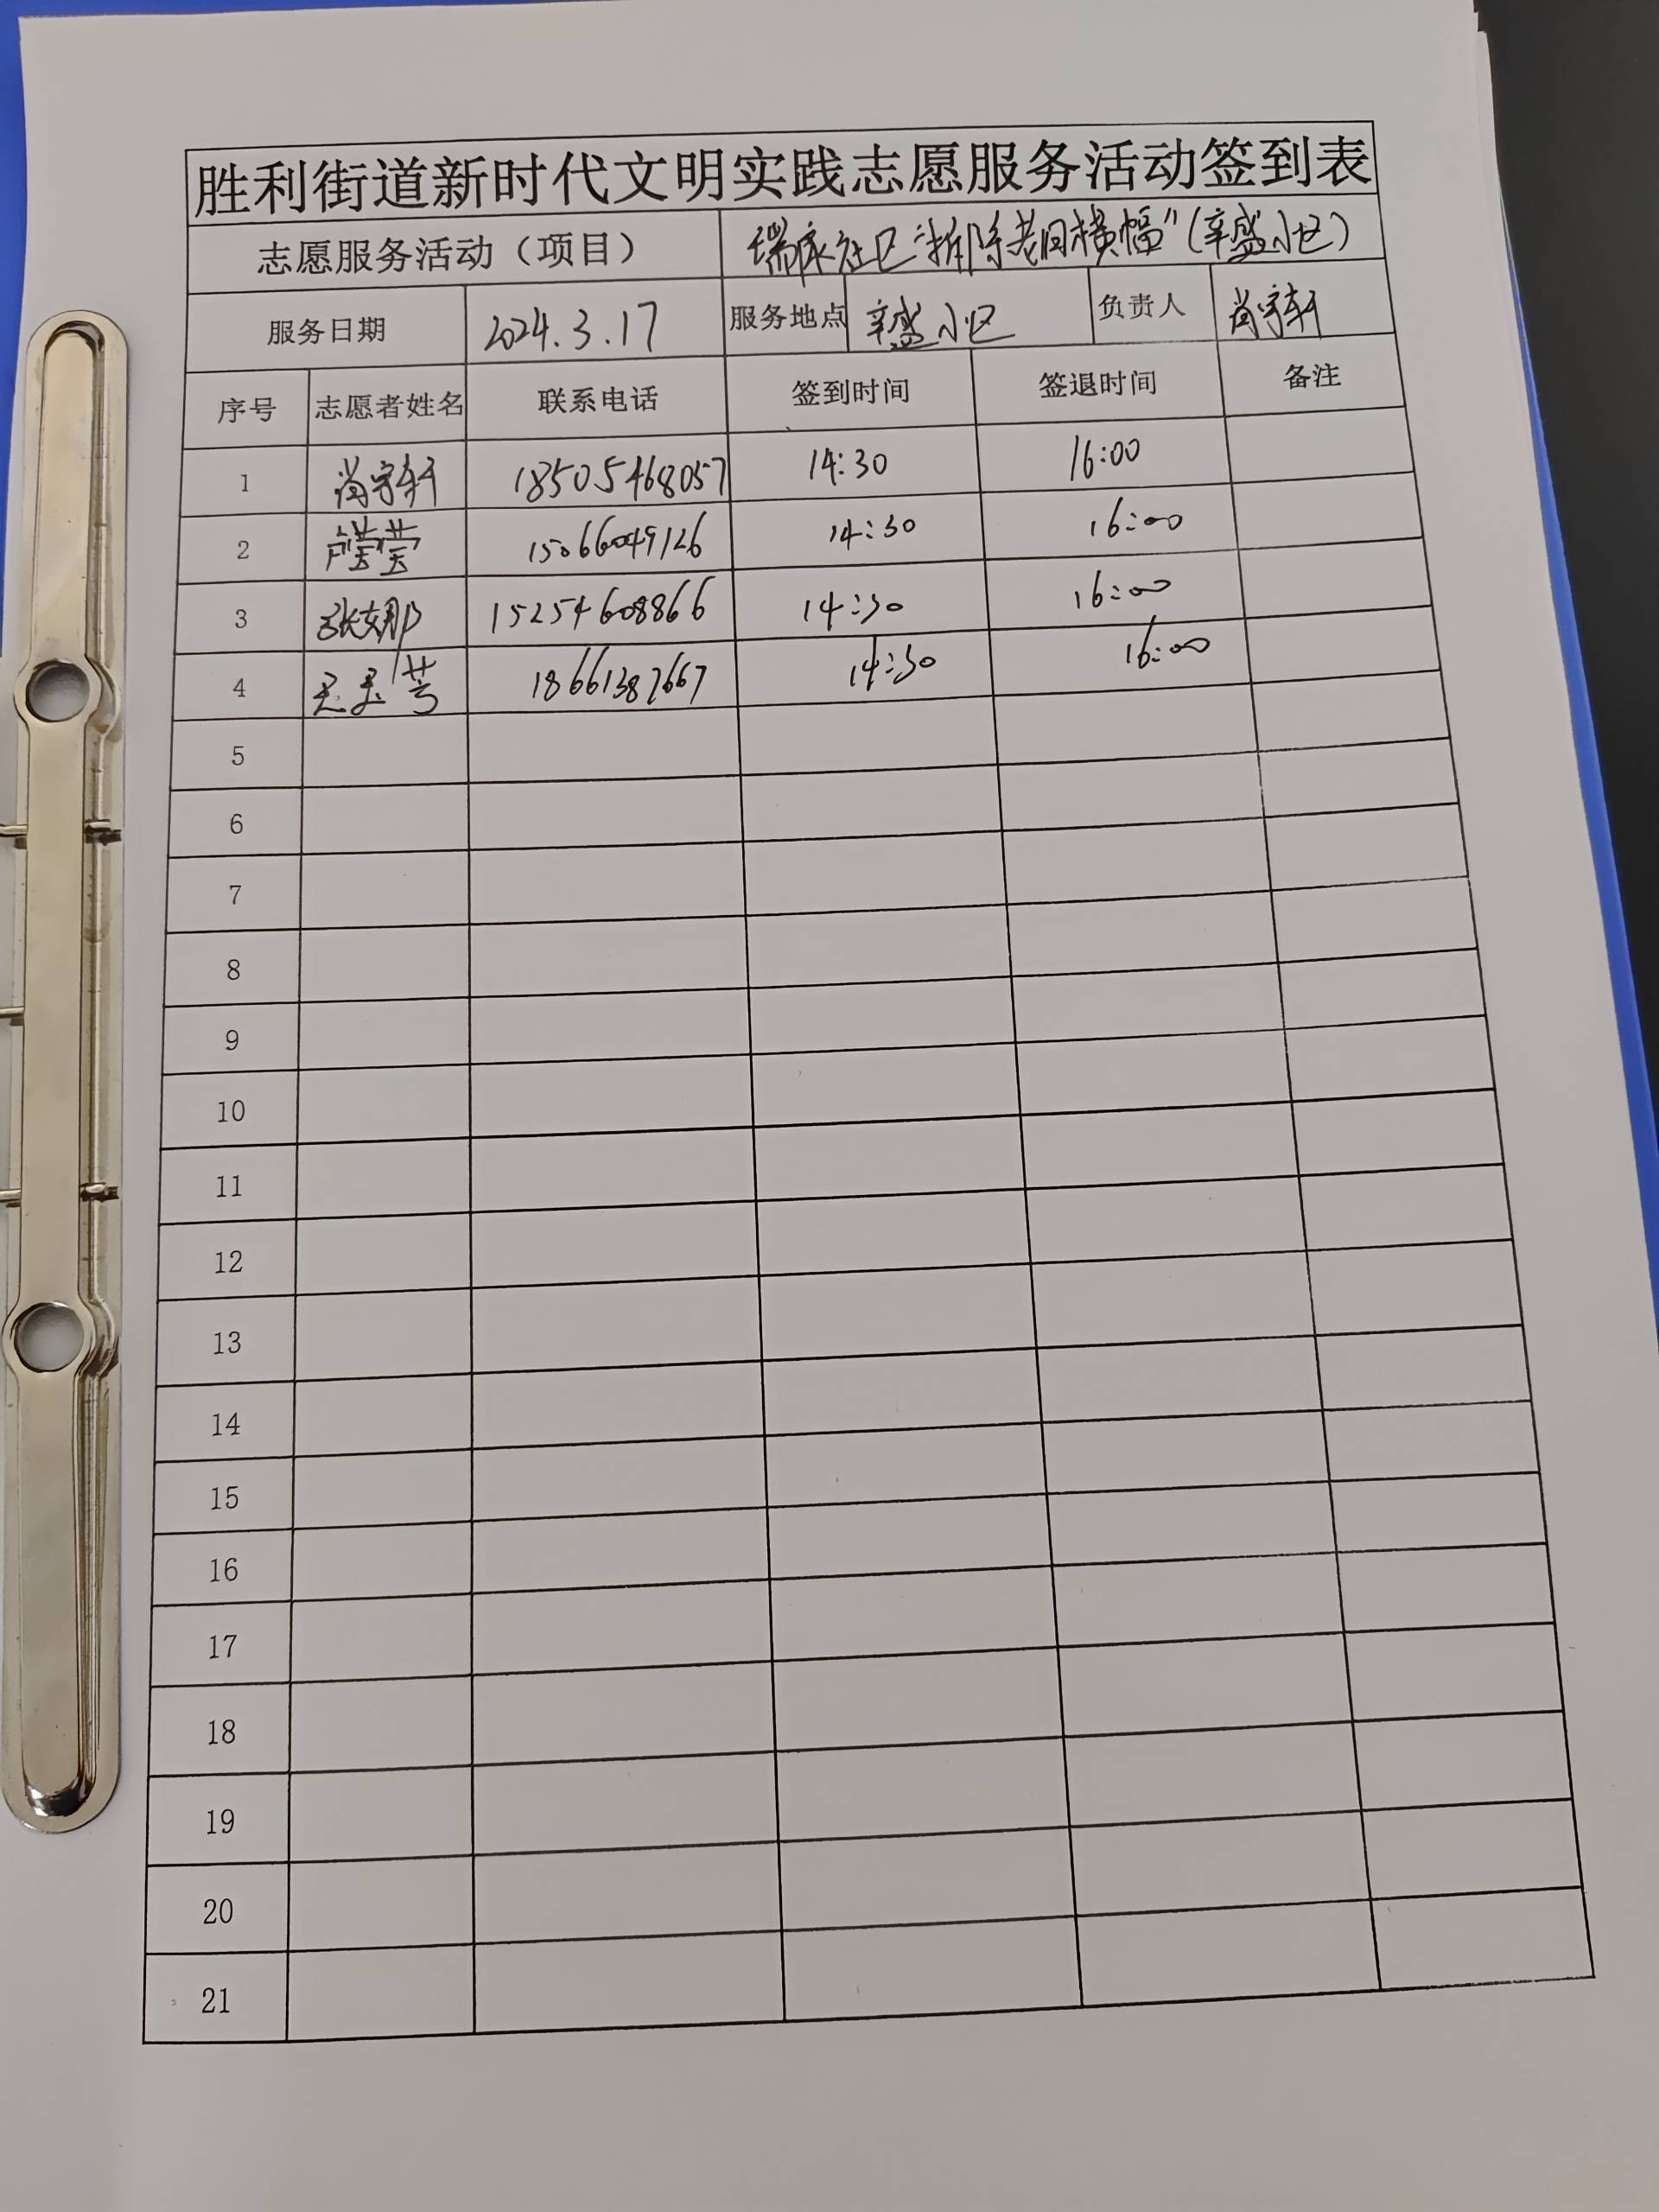 胜利街道新时代文明实践志愿服务活动签到表
志愿服务活动（项目） 瑞康社区“拆除老旧横幅”（辛盛小区）
服务日期 2024.3.17 服务地点 辛盛小区 负责人 尚宇轩
序号 志愿者姓名 联系电话 签到时间 签退时间 备注
1 尚宇轩 18505468057 14:30 16:00
2 15066049126 14:30 16:00
3 张娜 15254608866 14:30 16:00
4 18661387667 14:30 16:00
5
6
7
8
9
10
11
12
13
14
15
16
17
18
19
20
21